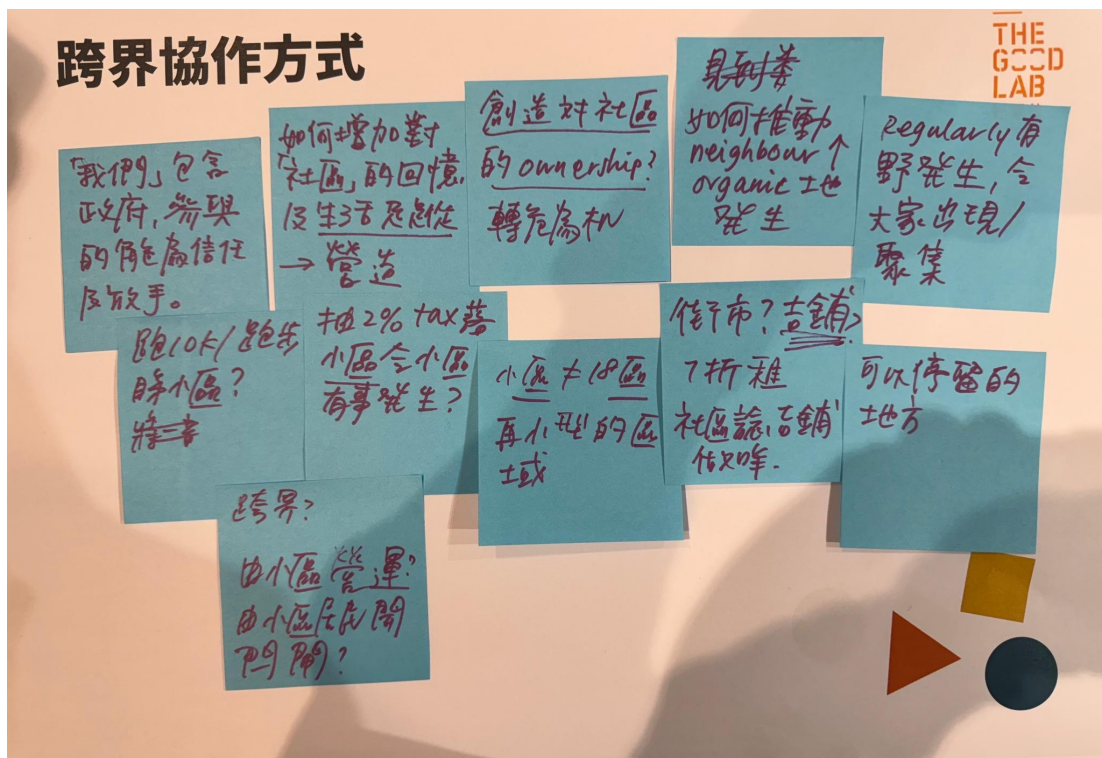 跨界協作方式
THE
GOOD
LAB
「我們」包含
政府,參與
的能處信任
及放手。
如何增加對
「社區」的回憶
及生活足迹從
→ 營造
創造对社區
的 ownership?
轉危為机
見到
如何推動
neighbour ↑
organic 土地
発生
Regularly 有
野発生,令
大家出現/
聚集
跑10K/跑步
睇小區?
抽2% tax落
小區令小區
有事発生?
小區 ≠ 18區
再小型的區
域
街市?吉鋪?
7折租
社區誌,吉鋪
做咩.
可以停留的
地方
跨界?
由小區營運?
由小區居民開
閂閘?